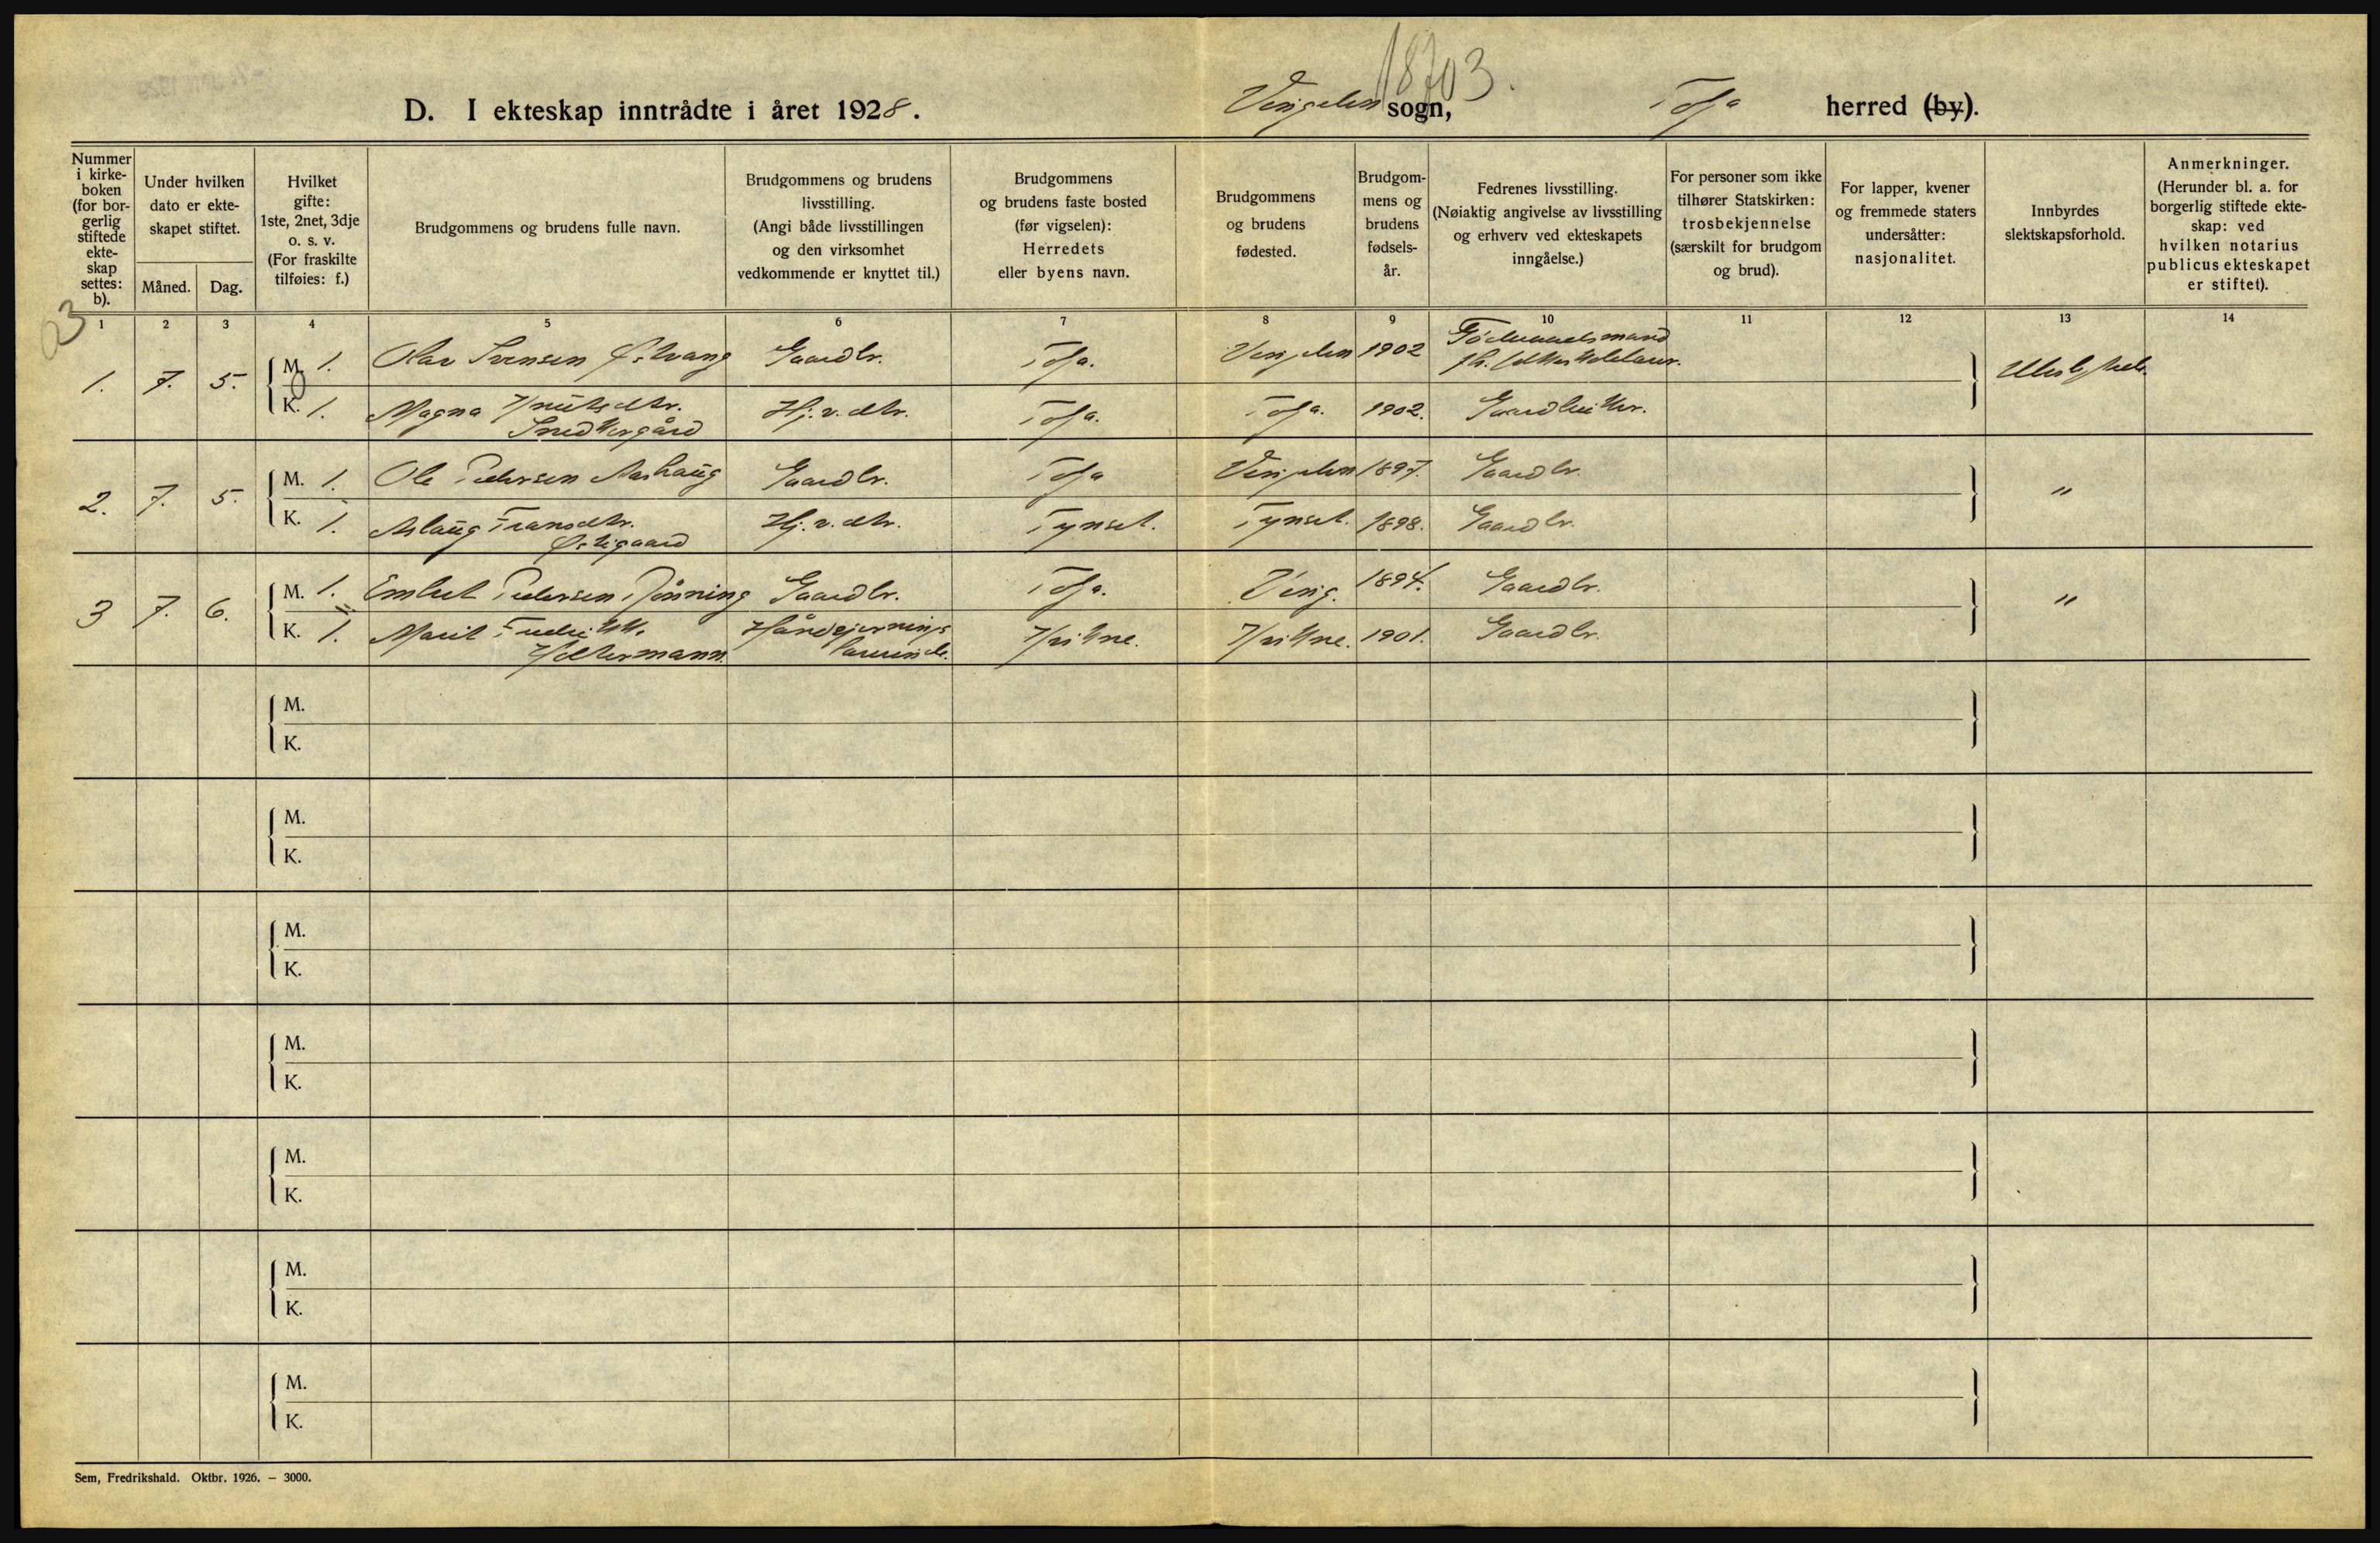 18703.
D. I ekteskap inntrådte i året 1928. Vingelen sogn, Tolga herred (by).
Nummer i kirke-boken (for bor-gerlig stiftede ekte-skap settes: b).
Under hvilken dato er ekte-skapet stiftet.
Måned. Dag.
Hvilket gifte: 1ste, 2net, 3dje o. s. v. (For fraskilte tilføies: f.)
Brudgommens og brudens fulle navn.
Brudgommens og brudens livsstilling. (Angi både livsstillingen og den virksomhet vedkommende er knyttet til.)
Brudgommens og brudens faste bosted (før vigselen): Herredets eller byens navn.
Brudgommens og brudens fødested.
Brudgom-mens og brudens fødsels-år.
Fedrenes livsstilling. (Nøiaktig angivelse av livsstilling og erhverv ved ekteskapets inngåelse.)
For personer som ikke tilhører Statskirken: trosbekjennelse (særskilt for brudgom og brud).
For lapper, kvener og fremmede staters undersåtter: nasjonalitet.
Innbyrdes slektskapsforhold.
Anmerkninger. (Herunder bl. a. for borgerlig stiftede ekte-skap: ved hvilken notarius publicus ekteskapet er stiftet).
1 2 3 4 5 6 7 8 9 10 11 12 13 14
1. 7. 5. M. 1. Svensen Østvang Gaardbr. Tolga. Vingelen 1902
K. 1. Magna Knutsdtr. Snedkergård Hj. v. dtr. Tolga. Tolga. 1902. Gaardbruker.
2. 7. 5. M. 1. Ole Pedersen Aashaug Gaardbr. Tolga Vingelen 1897. Gaardbr. "
K. 1. Aslaug Fransdtr. Østigaard Hj. v. dtr. Tynset. Tynset. 1898. Gaardbr.
3 7. 6. M. 1. Embret Pedersen Rønning Gaardbr. Tolga. Ving. 1894. Gaardbr. "
K. 1. Marit Holtermann. Kvikne. Kvikne. 1901. Gaardbr.
M.
K.
M.
K.
M.
K.
M.
K.
M.
K.
M.
K.
M.
K.
Sem, Fredrikshald. Oktbr. 1926. — 3000.